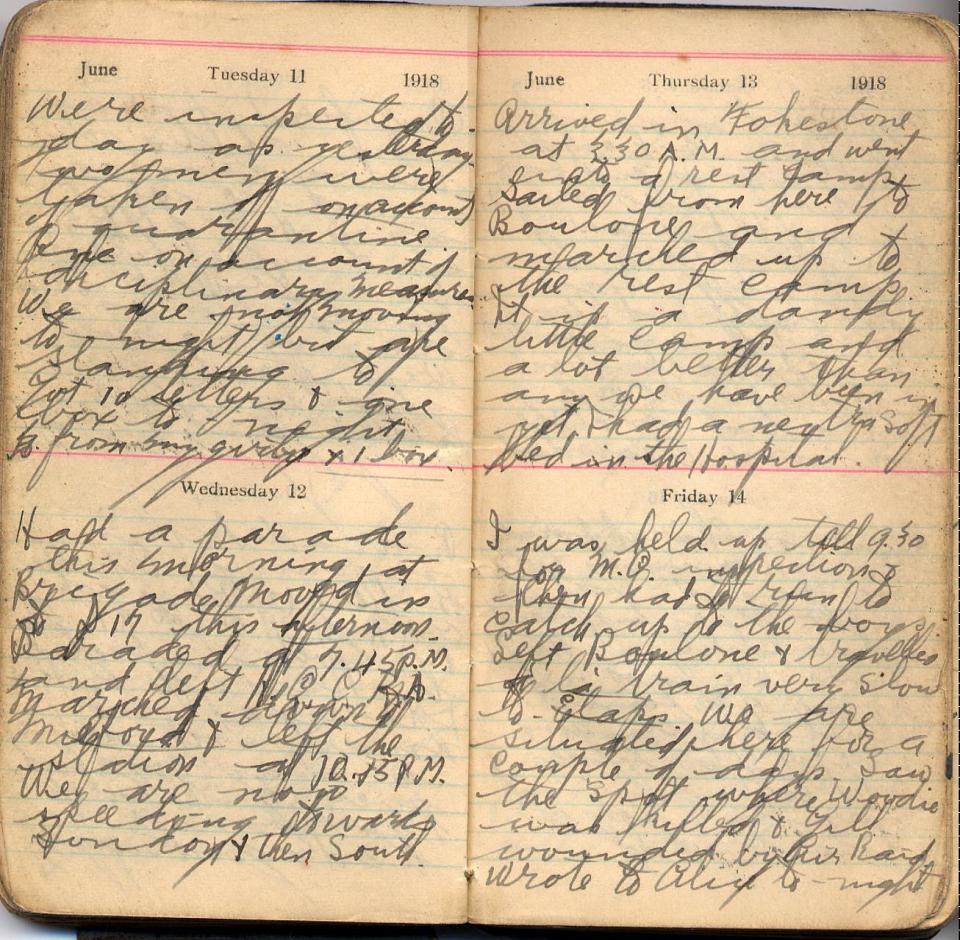 June Tuesday 11 1918
Were inspected to
day as yesterday.
two men were
taken off on account
of quarantine.
One on account of
disciplinary measures
We are not moving
to night but are
standing to
Got 10 letters & one
box to night
from my girly & 1 box.
Wednesday 12
Had a parade
this morning at
Brigade Moved in
to 17 this afternoon.
Paraded at 7.45 P.M.
and left
Marched down to
Milford & left the
station at 10.15 P.M.
We are now
speeding towards
London & then South.
June Thursday 13 1918
Arrived in Fokestone
at 3.30 A.M. and went
into a rest camp
Sailed from here to
Boulone and
marched up to
the rest camp
It is a dandy
little camp and
a lot better than
any we have been in
yet. I had a nice soft
bed in the Hospital.
Friday 14
I was held up till 9.30
for M.O. inspection &
then had to run to
catch up to the boys.
Left Boulone & travelled
by train very slow
to Etaps. We are
situated here for a
couple of days. Saw
the spot where Woodie
was killed & Gill
wounded by Air Raid
Wrote to Alix to-night